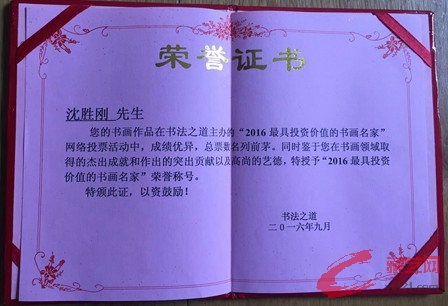 荣誉证书
沈胜刚 先生
您的书画作品在书法之道主办的“2016最具投资价值的书画名家”
网络投票活动中，成绩优异，总票数名列前茅。同时鉴于您在书画领域取
得的杰出成就和作出的突出贡献以及高尚的艺德，特授予“2016最具投资
价值的书画名家”荣誉称号。
特颁此证，以资鼓励！
书法之道
二〇一六年九月